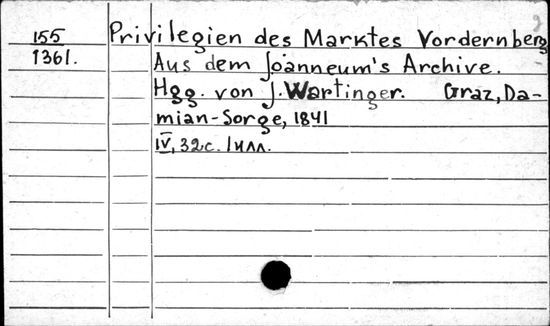 155 Privilegien des Marktes Vordernberg
1361. Aus dem Joanneum's Archive.
Hgg. von J. Wartinger. Graz, Da-
mian-Sorge, 1841
IV, 32c. 1илл.